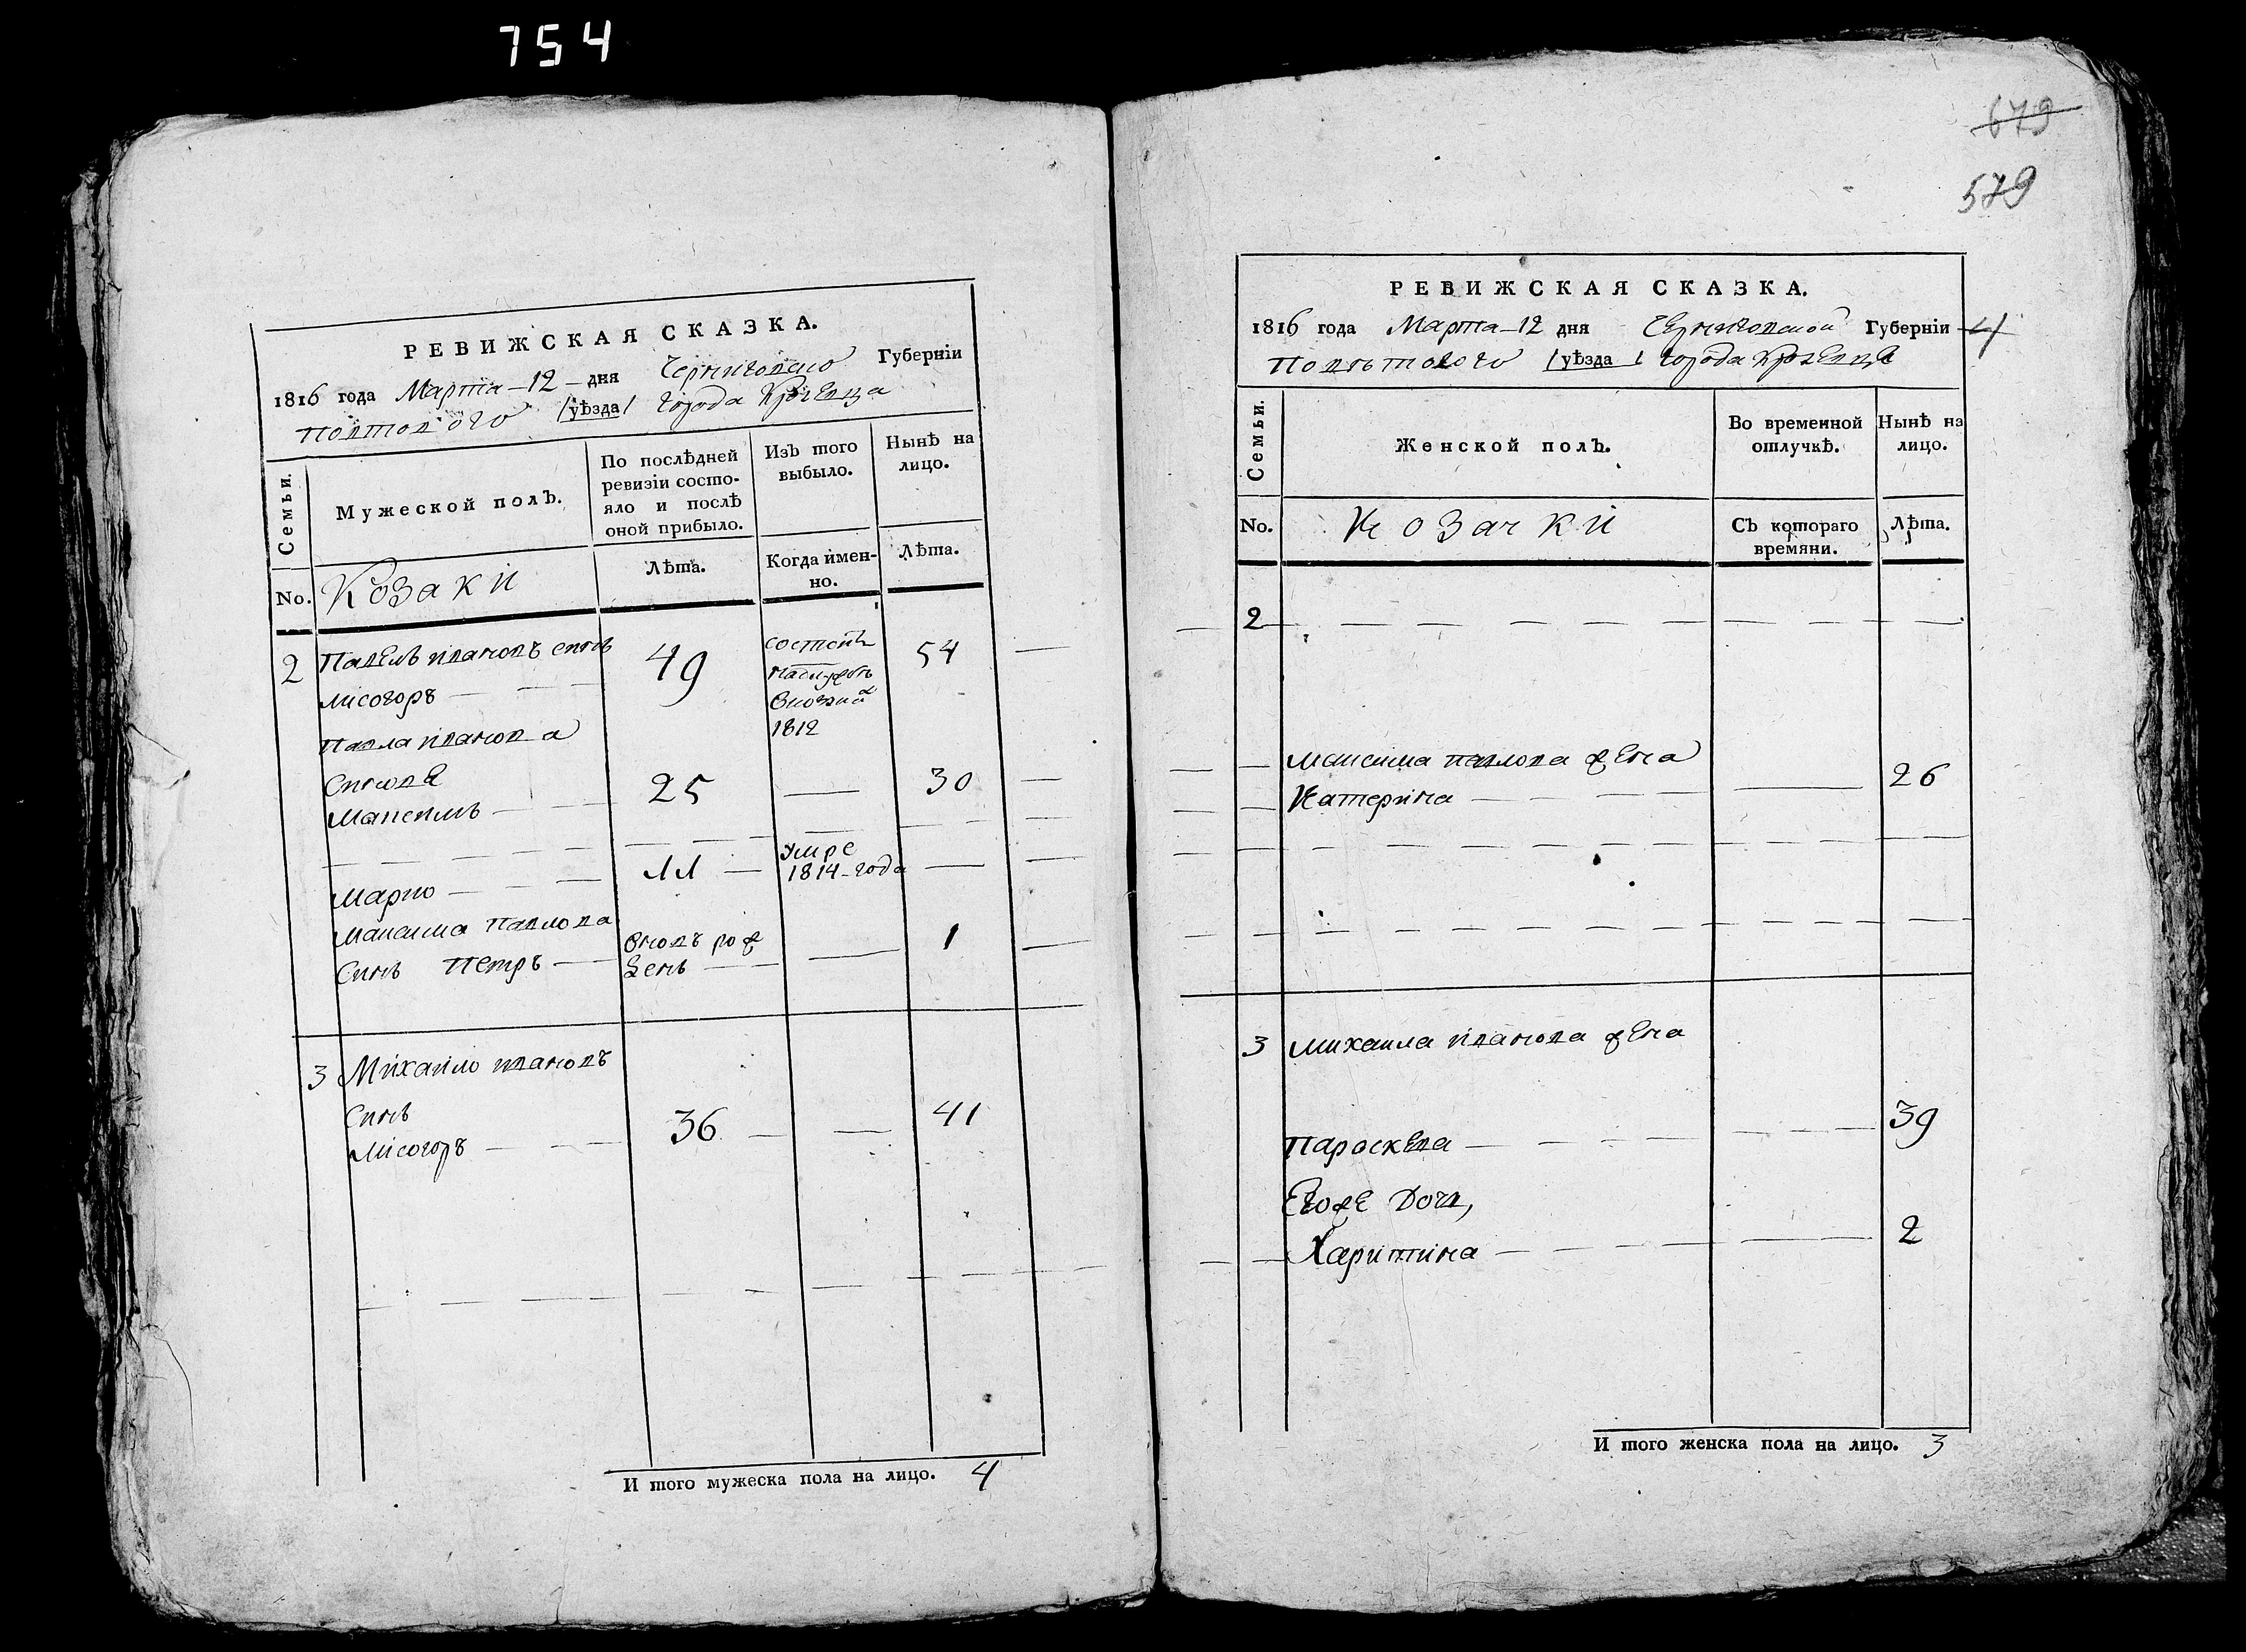 754
РЕВИЖСКАЯ СКАЗКА.
1816 года Марта 12 дня Черниговско Губернїи
повтового уѣзда города Кролевца
Семьи.
Мужеской полъ.
По послѣдней ревизїи состояло и послѣ оной прибыло.
Изъ того выбыло.
Нынѣ на лицо.
No.
Козаки
Лѣта.
Когда имен-
но.
Лѣта.
2 Павелъ ивановъ синъ 49 54
лисогоръ
1812
Павла иванова
Синове
Максимъ 25 30
Умре
Марко 11 1814 года
Максима Павлова
Синъ Петръ вновъ рож 1
денъ
3 Михаило ивановъ
Синъ
Лисогоръ 36 41
И того мужеска пола на лицо. 4
679
579
РЕВИЖСКАЯ СКАЗКА.
1816 года Марта 12 дня Черниговской Губернїи
повѣтового уѣзда города Кролевца
4
Семьи.
Женской полъ.
Во временной
отлучкѣ.
Нынѣ на
лицо.
No.
Козачки
Съ котораго
времяни.
Лѣта.
2
Максима павлова жена
Катерина 26
3 Михаила иванова жена
Параскева 39
Егоже Дочь,
Харитина 2
И того женска пола на лицо. 3